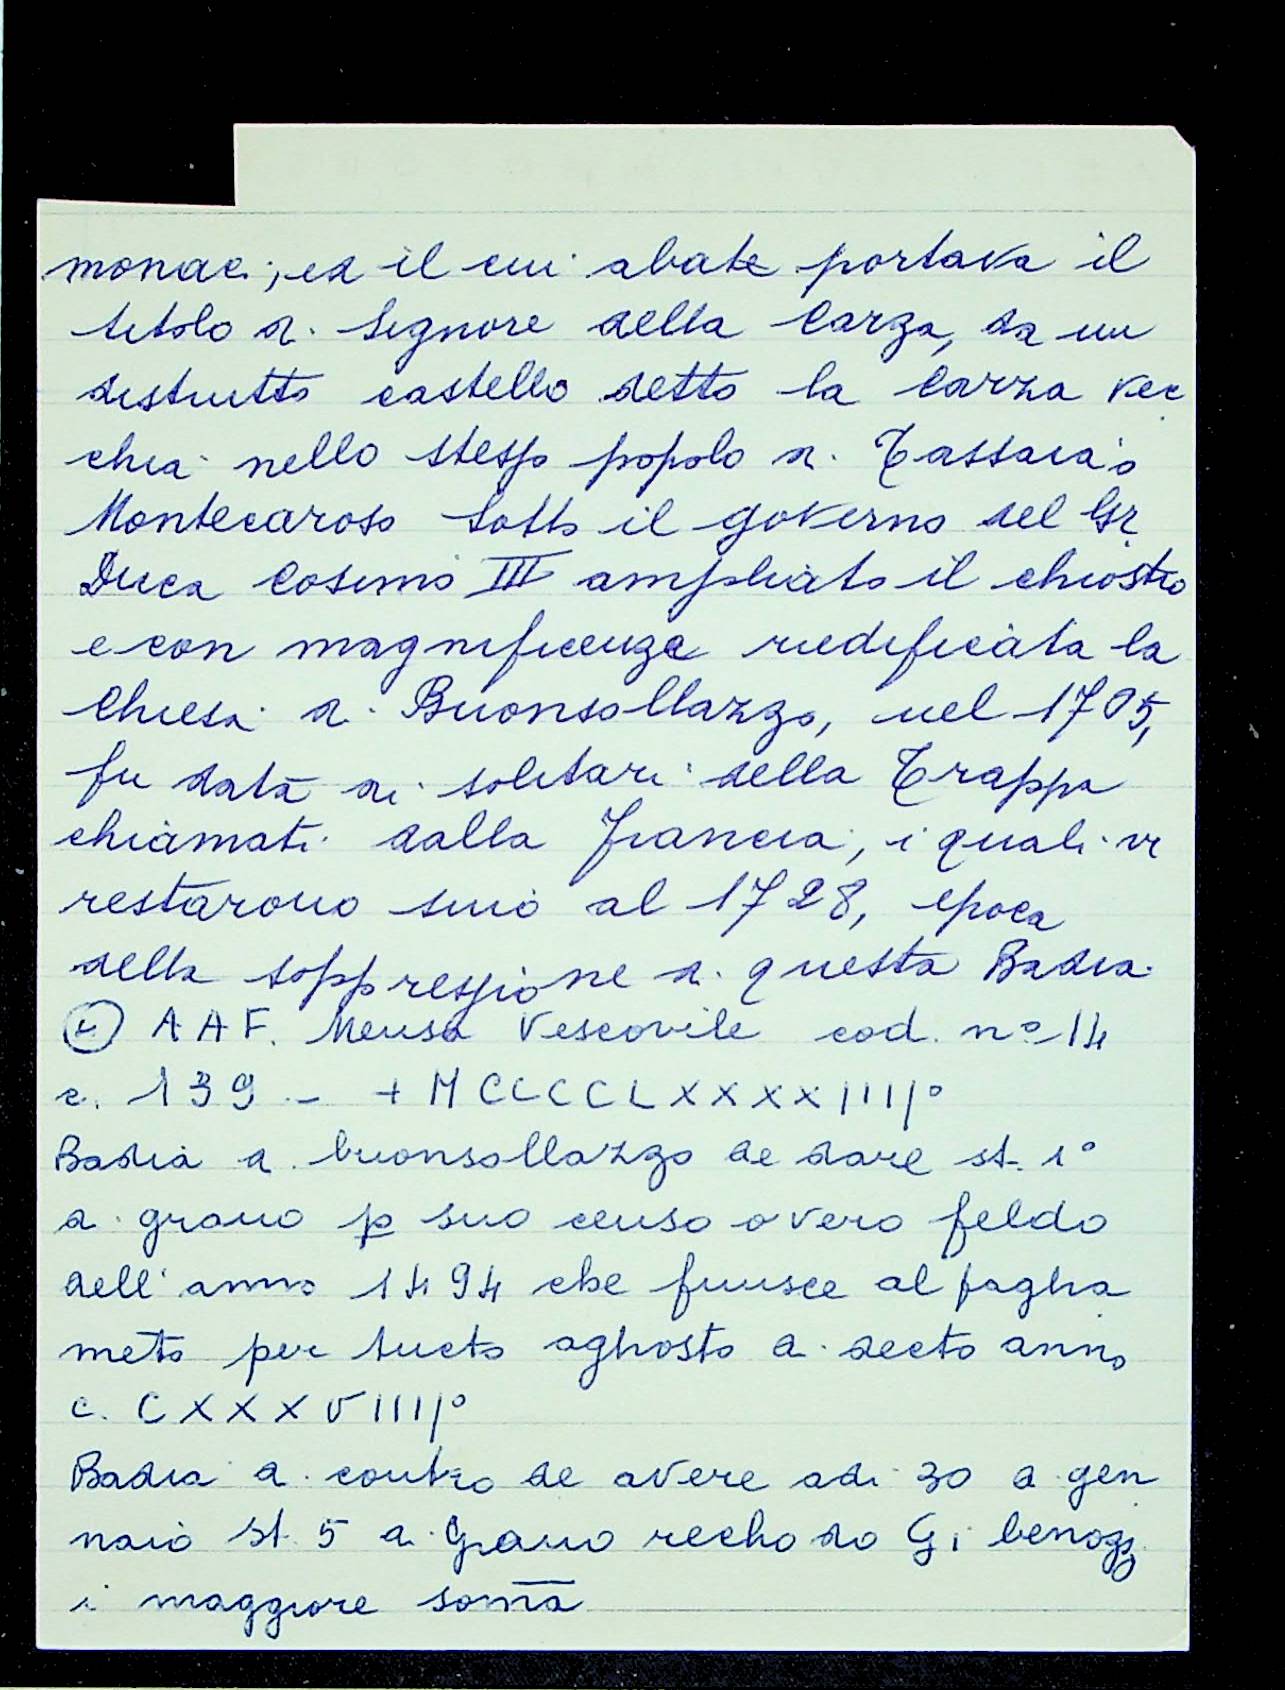 monaci; ed il cui abate portava il
titolo di Signore della Carza, da un
distrutto castello detto la Carza vec
chia nello stesso popolo di Tassaia o
Montecaroso sotto il governo del Gr.
Duca Cosimo III ampliato il chiostro
e con magnificenza riedificata la
Chiesa di Buonsollazzo, nel 1705,
fu data ai solitari della Trappa
chiamati dalla Francia, i quali vi
restarono sino al 1728, epoca
della soppressione di questa Badia.
AAF. Mensa Vescovile cod. n° 14
c. 139 - + MCCCCLXXXXIIII°
Badia a buonsollazzo de dare st. 1°
di grano p suo censo overo feldo
dell'anno 1494 che finisce al pagha
meto per tucto aghosto di decto anno
c. CXXXVIIII°
Badia di contro de avere adi 30 di gen
naio st. 5 di Grano recho do Gi benozzi
i maggiore somā